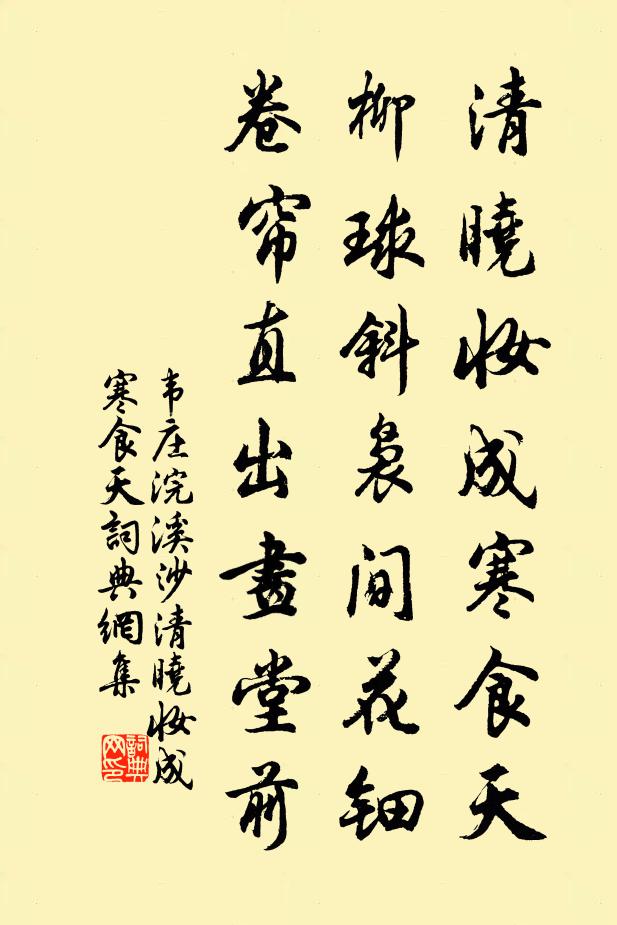 清曉妆成寒食天
柳球斜袅间花钿
卷帘直出畫堂前
韦庄浣溪沙清曉妆成
寒食天詞典網集
詞典
网印